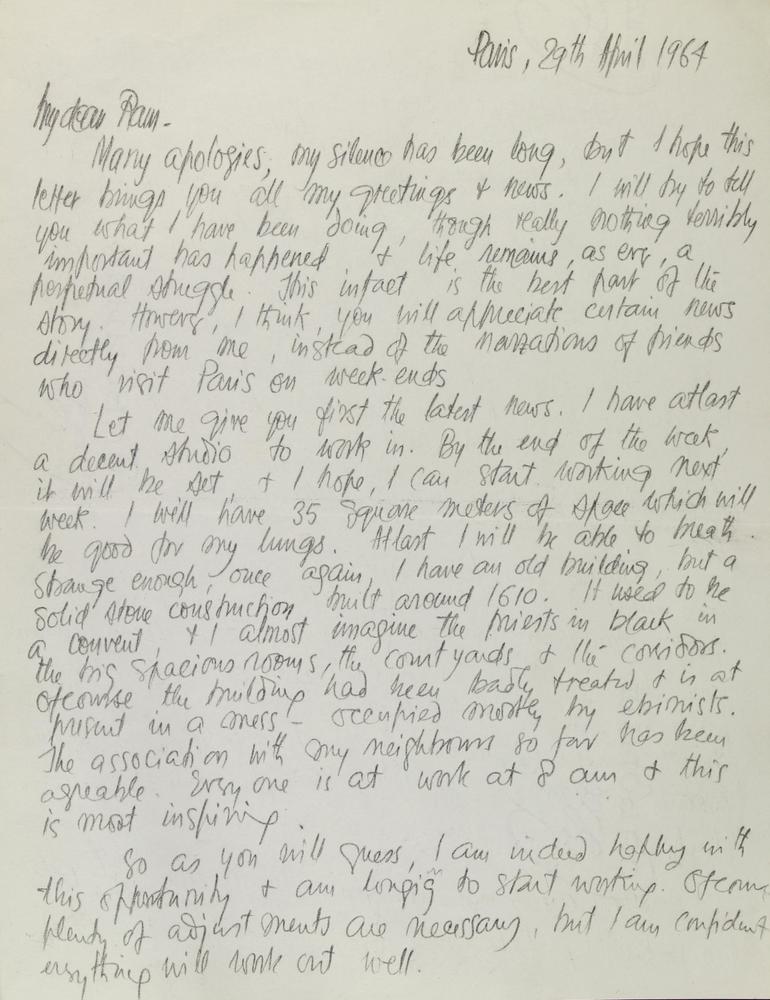 Paris, 29th April 1964
My dear Ram-
Many apologies, my silence has been long, but I hope this
letter brings you all my greetings & news. I will try to tell
you what I have been doing, though really nothing terribly
important has happened & life remains, as ever, a
perpetual struggle. This infact is the best part of the
story. However, I think, you will appreciate certain news
directly from me, instead of the narrations of friends
who visit Paris on week-ends
Let me give you first the latest news. I have atlast
a decent studio to work in. By the end of the week,
it will be set, & I hope, I can start working next
week. I will have 35 square meters of space which will
be good for my lungs. Atlast I will be able to breath.
Strange enough, once again, I have an old building, but a
solid stone construction, built around 1610. It used to be
a convent, & I almost imagine the priests in black in
the big spacious rooms, the courtyards, & the corridors.
Ofcourse the building had been badly treated & is at
present in a mess - occupied mostly by ebinists.
The association with my neighbours so far has been
agreable. Every one is at work at 8 am & this
is most inspiring.
So as you will guess, I am indeed happy with
this opportunity & am longig to start working. Ofcourse
plenty of adjustments are necessary, but I am confident
everything will work out well.